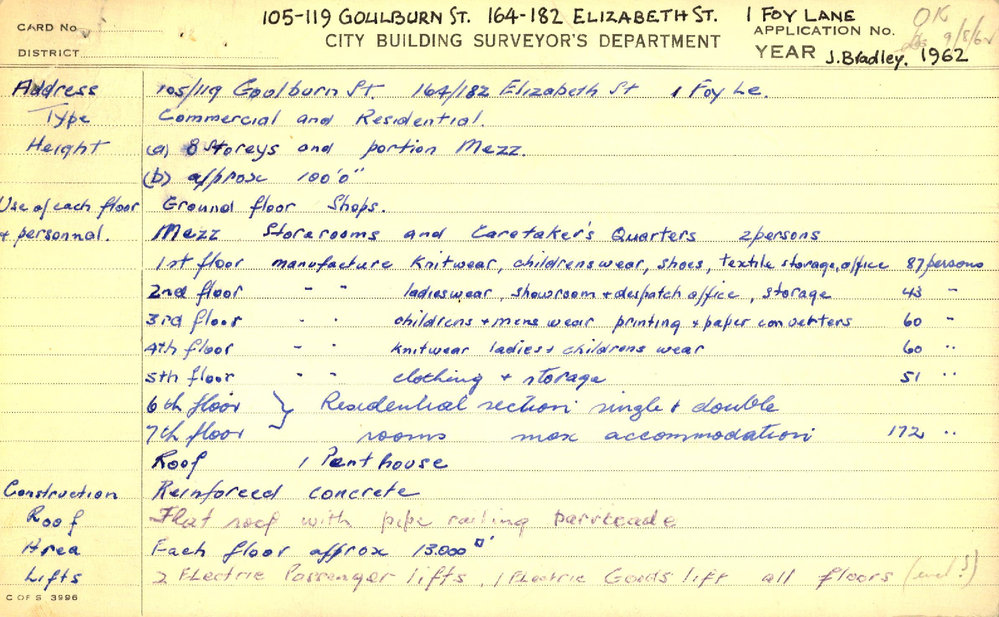 105-119 GOULBURN ST. 164-182 ELIZABETH ST. 1 FOY LANE
OK
CARD No.
CITY BUILDING SURVEYOR'S DEPARTMENT
APPLICATION No.
9/8/62
DISTRICT
YEAR J. Bradley. 1962
Address 105/119 Goulburn St. 164/182 Elizabeth St 1 Foy Le.
Type Commercial and Residential.
Height (a) 8 Storeys and portion Mezz.
(b) approx 100'0"
Use of each floor Ground floor Shops.
+ personnal. Mezz Storerooms and Caretaker's Quarters 2 persons
1st floor manufacture Knitwear, childrenswear, shoes, textile storage, office 87 persons
2nd floor " " ladieswear, showroom + despatch office, storage 43 "
3rd floor " " childrens + mens wear printing + paper converters 60 "
4th floor " " Knitwear ladies + childrens wear 60 "
5th floor " " clothing + storage 51 "
6th floor } Residential section single + double
7th floor rooms max accommodation 172 "
Roof 1 Penthouse
Construction Reinforced concrete
Roof Flat roof with pipe railing barricade
Area Each floor approx 13.000 □'
Lifts 2 Electric Passenger lifts, 1 Electric Goods lift all floors
C OF S 3996